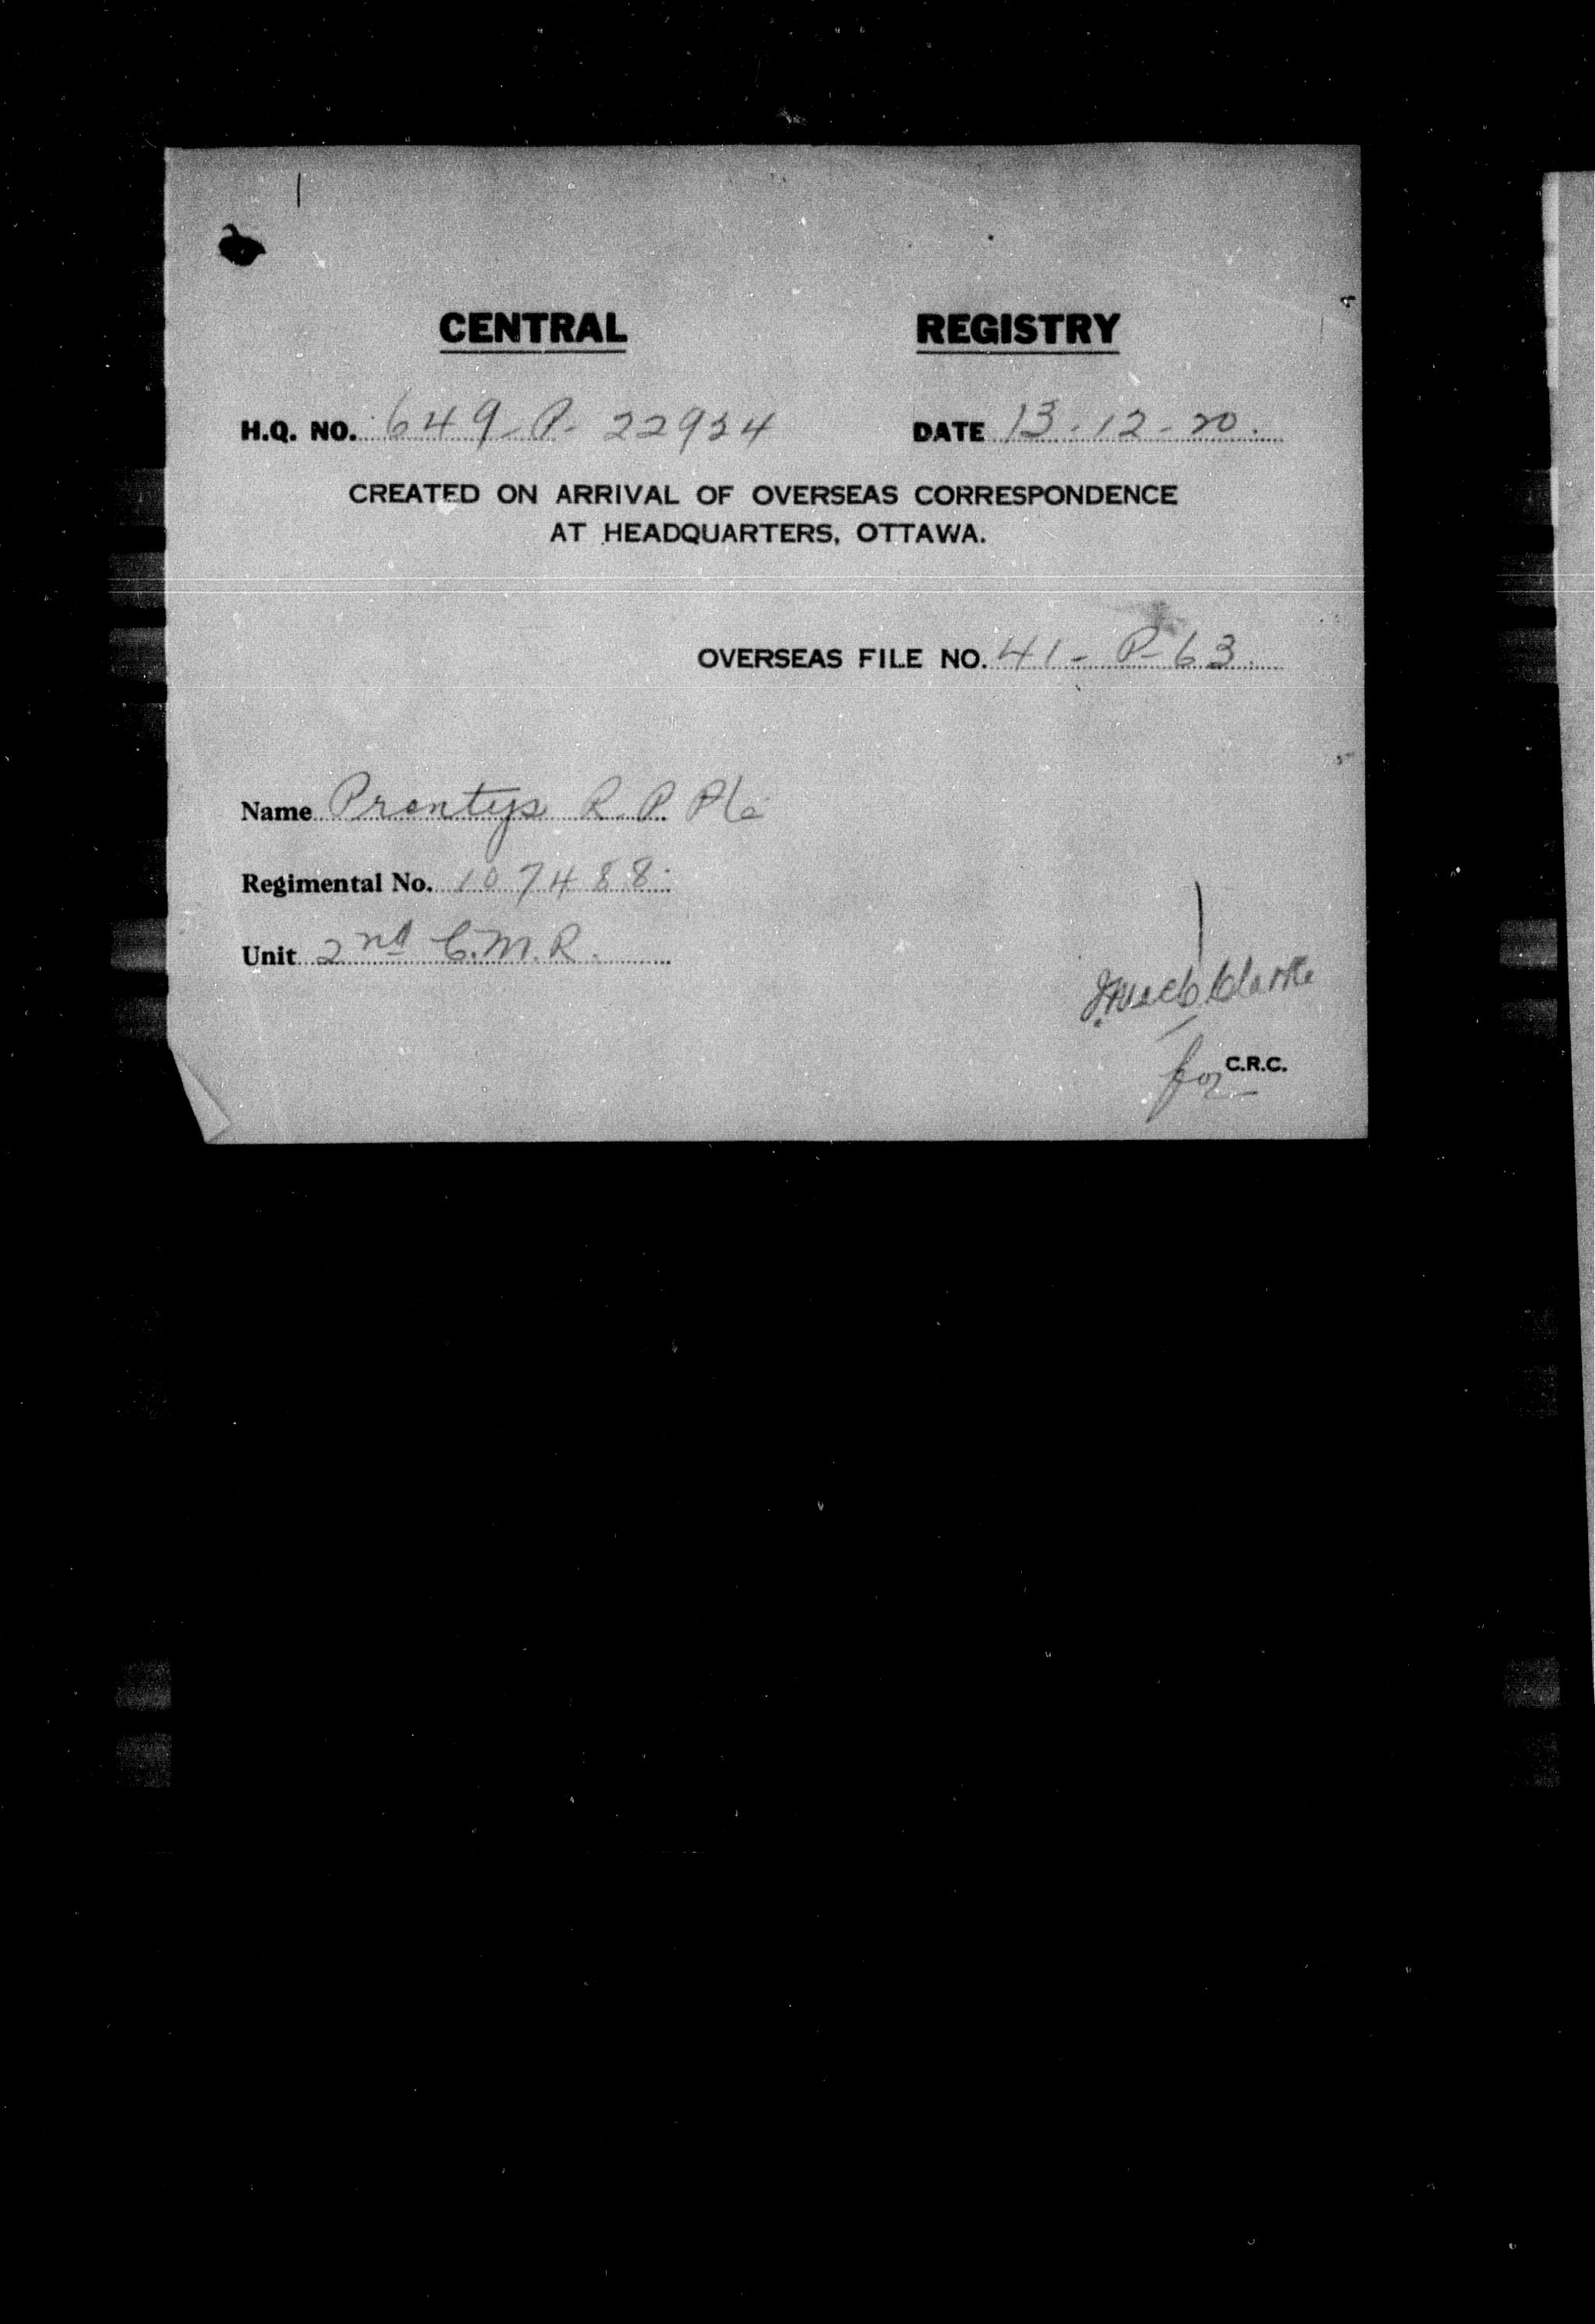 CENTRAL REGISTRY
H.Q. NO. 649-P-22954 DATE 13-12-20.
CREATED ON ARRIVAL OF OVERSEAS CORRESPONDENCE
AT HEADQUARTERS, OTTAWA.
OVERSEAS FILE NO. 41-P-63
Name R. P. Pte
Regimental No. 107488
Unit 2nd C.M.R.
Clarke
for C.R.C.